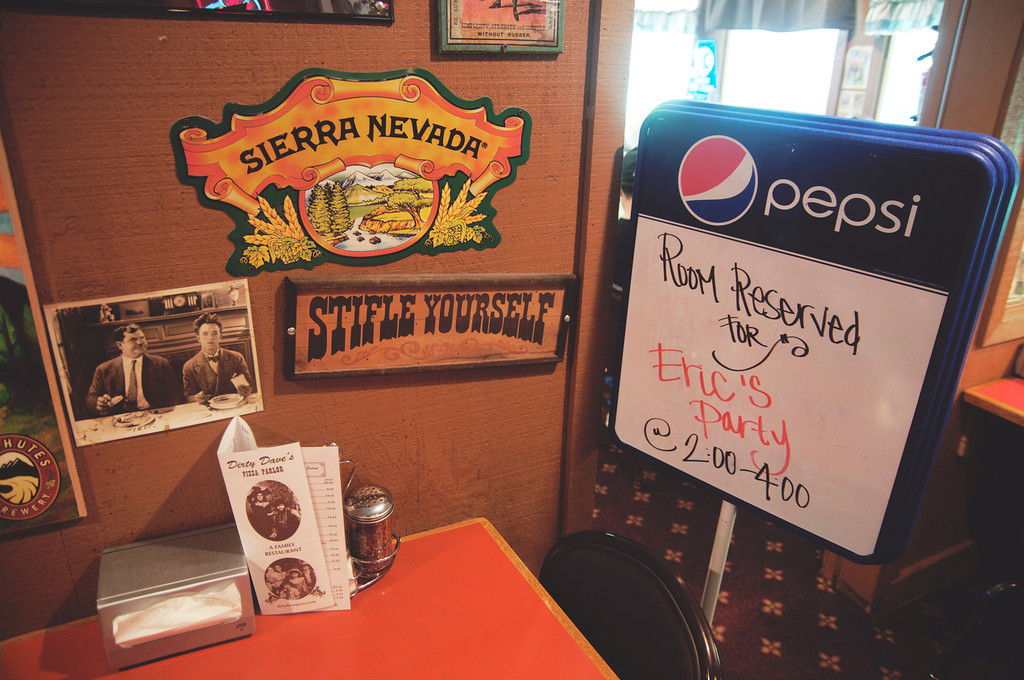 WITHOUT RUBBER.
SIERRA NEVADA®
STIFLE YOURSELF
HUTES
BREWERY
Dirty Dave's
PIZZA PARLOR
A FAMILY
RESTAURANT
pepsi
Room Reserved
FOR
Eric's
Party
@ 2:00-4:00